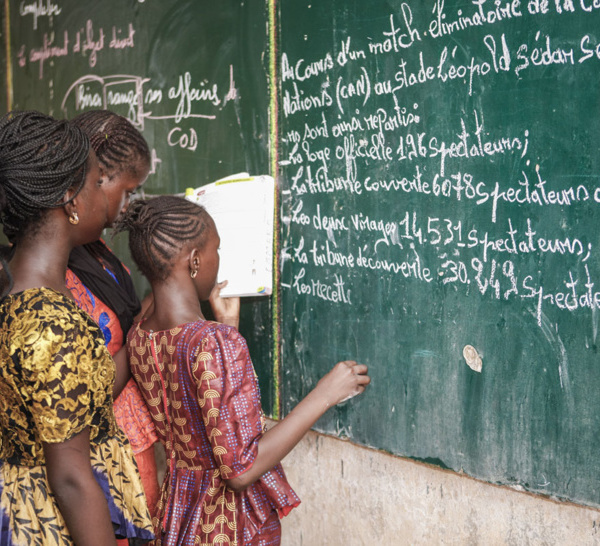 Compléter
Le complément d'objet direct
Binta range ses affaires
COD
Au cours d'un match éliminatoire de la
Nations (CAN) au stade Léopold Sédar
rs sont ainsi repartis:
-La loge officielle 126 spectateurs;
-La tribune couverte 6078 spectateurs
-Les deux virages 14.531 spectateurs;
-La tribune découverte 30.242 spectate
-Les recett